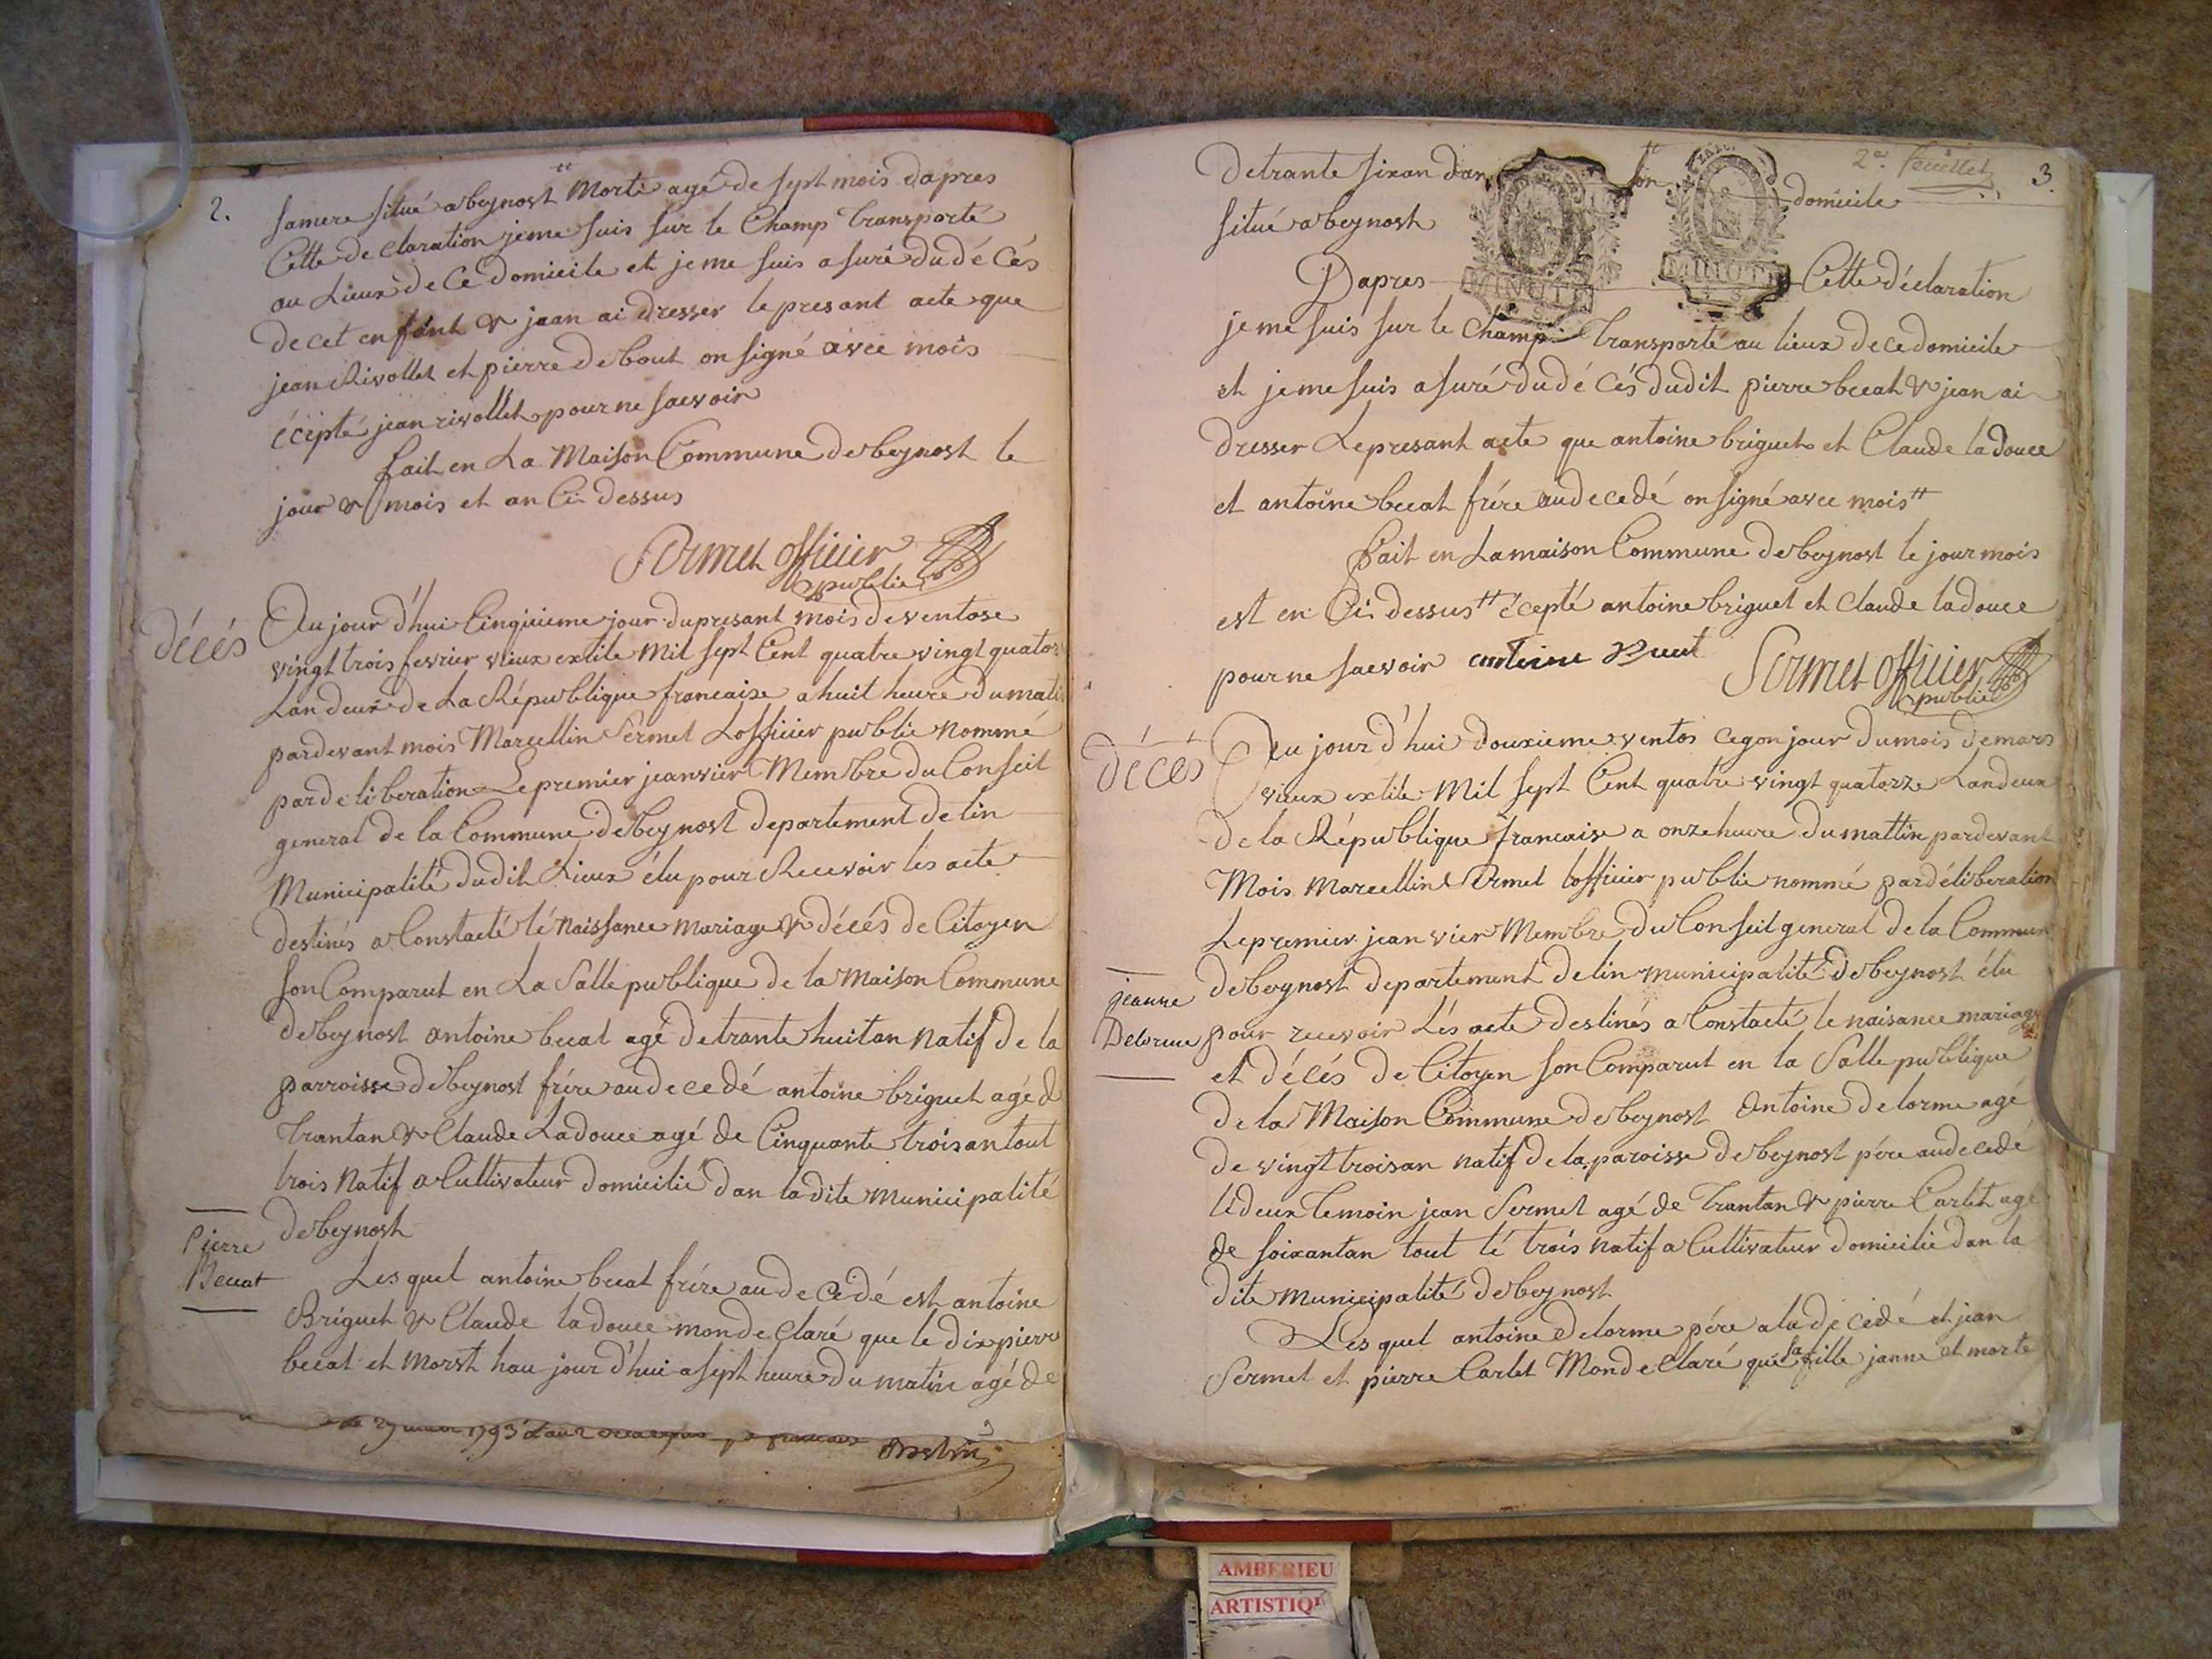 2.
samere situé a beynost tt Morte agé de sept mois dapres
Cette declaration jeme suis sur le Champ Transporté
au Lieux de Ce domicile et je me suis asuré du dé Cés
de cet enfant & jean ai dresser le presant acte que
jean Rivollet et pierre debout on signé avec mois
écépté jean rivollet pour ne saevoir
fait en La Maison Commune de beynost le
jour & mois et an Ci dessus
Sermet officier
public
décés
Au jour d'hui Cinquieme jour du presant mois de ventose
vingt trois fevrier vieux extile Mil sept Cent quatre vingt quator
Lan deux de La République francaise a huit heure du mati
pardevant mois Marcellin Sermet Lofficier public nommé
par deliberation Le premier jeanvier Membre du Conseil
general de la Commune de beynost departement de lin
Municipalité dudit Lieux élu pour Recevoir les acte
destinés a Constacté lé Naissance Mariage & décés de Citoyen
son Comparut en La Salle publique de la Maison Commune
de beynost antoine becat agé de trante huit an Natif de la
parroisse de beynost frére au decedé antoine briguet agé d
Trantan & Claude Ladouce agé de Cinquante trois an tout
trois Natif a Cultivateur domicilié dan la dite Municipalité
de beynost
Pierre
Becat
Les quel antoine becat frére au de Cedé est antoine
Briguet & Claude ladouce monde Claré que le dix pierre
becat et Morst hau jour d'hui a sept heure du matin agé de
1793
2e. feuillet
3.
de trante sixan dan son domicile
situé a beynost
MINUTE
MINUTE
Dapres Cette déclaration
je me suis sur le Champ Transporté au lieux de ce domicile
et je me suis asuré du dé Cés dudit pierre becat & jean ai
dresser Le presant acte que antoine briguet et Claude la douce
et antoine becat frére au decedé on signé avec mois tt
fait en La maison Commune de beynost le jour mois
est en Ci dessus tt écepté antoine briguet et Claude ladouce
pour ne saevoir antoine becat Sermet officier
public
décés
Au jour d'hui douxieme ventos cegon jour du mois de mars
vieux extile Mil sept Cent quatre vingt quatorze Lan deux
de la République francaise a onze heure du mattin pardevant
Mois Marcellin Sermet lofficier public nommé par déliberation
Le premier jean vier Membre du Conseil general de la Commun
de beynost departement de lin municipalité de beynost élu
jeanne
Delorme
pour recevoir Lés acte destinés a Constacté le naisance mariage
et décés de Citoyen son Comparut en la Salle publique
de la Maison Commune de beynost Antoine delorme agé
de vingt trois an natif de la paroisse de beynost pére au decedé
lé deux temoin jean Sermet agé de Trantan & pierre Carlet agé
de soixantan tout lé trois natif a Cultivateur domicilié dan la
dite municipalité de beynost
Les quel antoine Delorme pére a la de cedé et jean
Sermet et pierre Carlet Monde Claré que sa fille janne et morte
AMBERIEU
ARTISTIQ